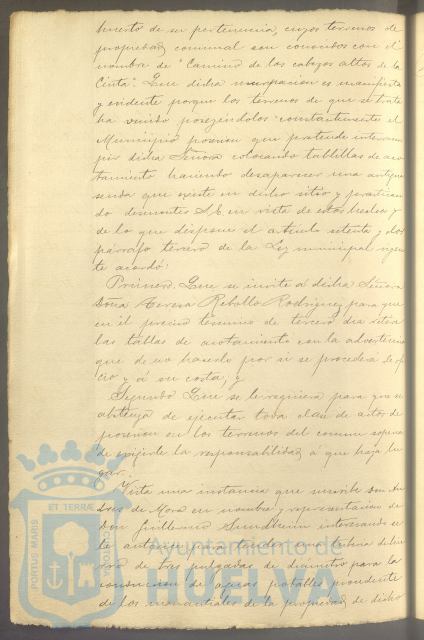 huerto de su pertenencia, cuyos terrenos de
propiedad comunal son conocidos con el
nombre de "Camino de los cabezos altos de la
Cinta". Que dicha usurpacion es manifiesta
y evidente porque los terrenos de que se trata
ha venido poseyéndolos constantemente el
Municipio posesion que pretende interrum
pir dicha Señora colocando tablillas de aco
tamiento haciendo desaparecer una antigua
senda que existe en dicho sitio y practican
do desmontes S.E. en vista de estos hechos y
de lo que dispone el articulo setenta y dos
párrafo tercero de la Ley municipal vigen
te acordó:
Primero. Que se invite a dicha Señora
Doña Teresa Rebollo Rodriguez para que
en el preciso término de tercero dia retire
las tablas de acotamiento con la advertencia
que de no hacerlo por si se procederá de ofi
cio y á su costa, y
Segundo Que se le requiera para que se
abstenga de ejecutar toda clase de actos de
posesion en los terrenos del comun so pena
de exigirle la responsabilidad a que haya lu
gar.
Vista una instancia que suscribe Don An
drés de Mora en nombre y representacion de
Don Guillermo Sundheim interesando se
le autorice para tender una tubería de hie
rro de tres pulgadas de diametro para la
conduccion de aguas potables procedente
de los manantiales de la propiedad de dicho
PORTUS MARIS
ET TERRÆ
CUSTODIA
Ayuntamiento de
HUELVA